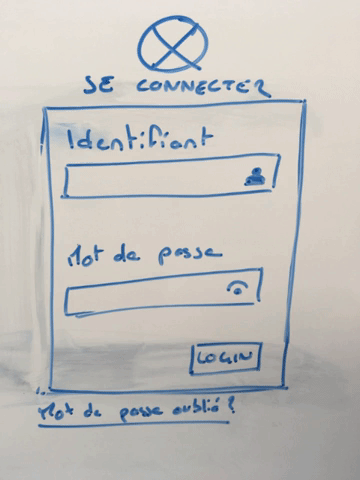 SE CONNECTER
Identifiant
Mot de passe
LOGIN
Mot de passe oublié ?